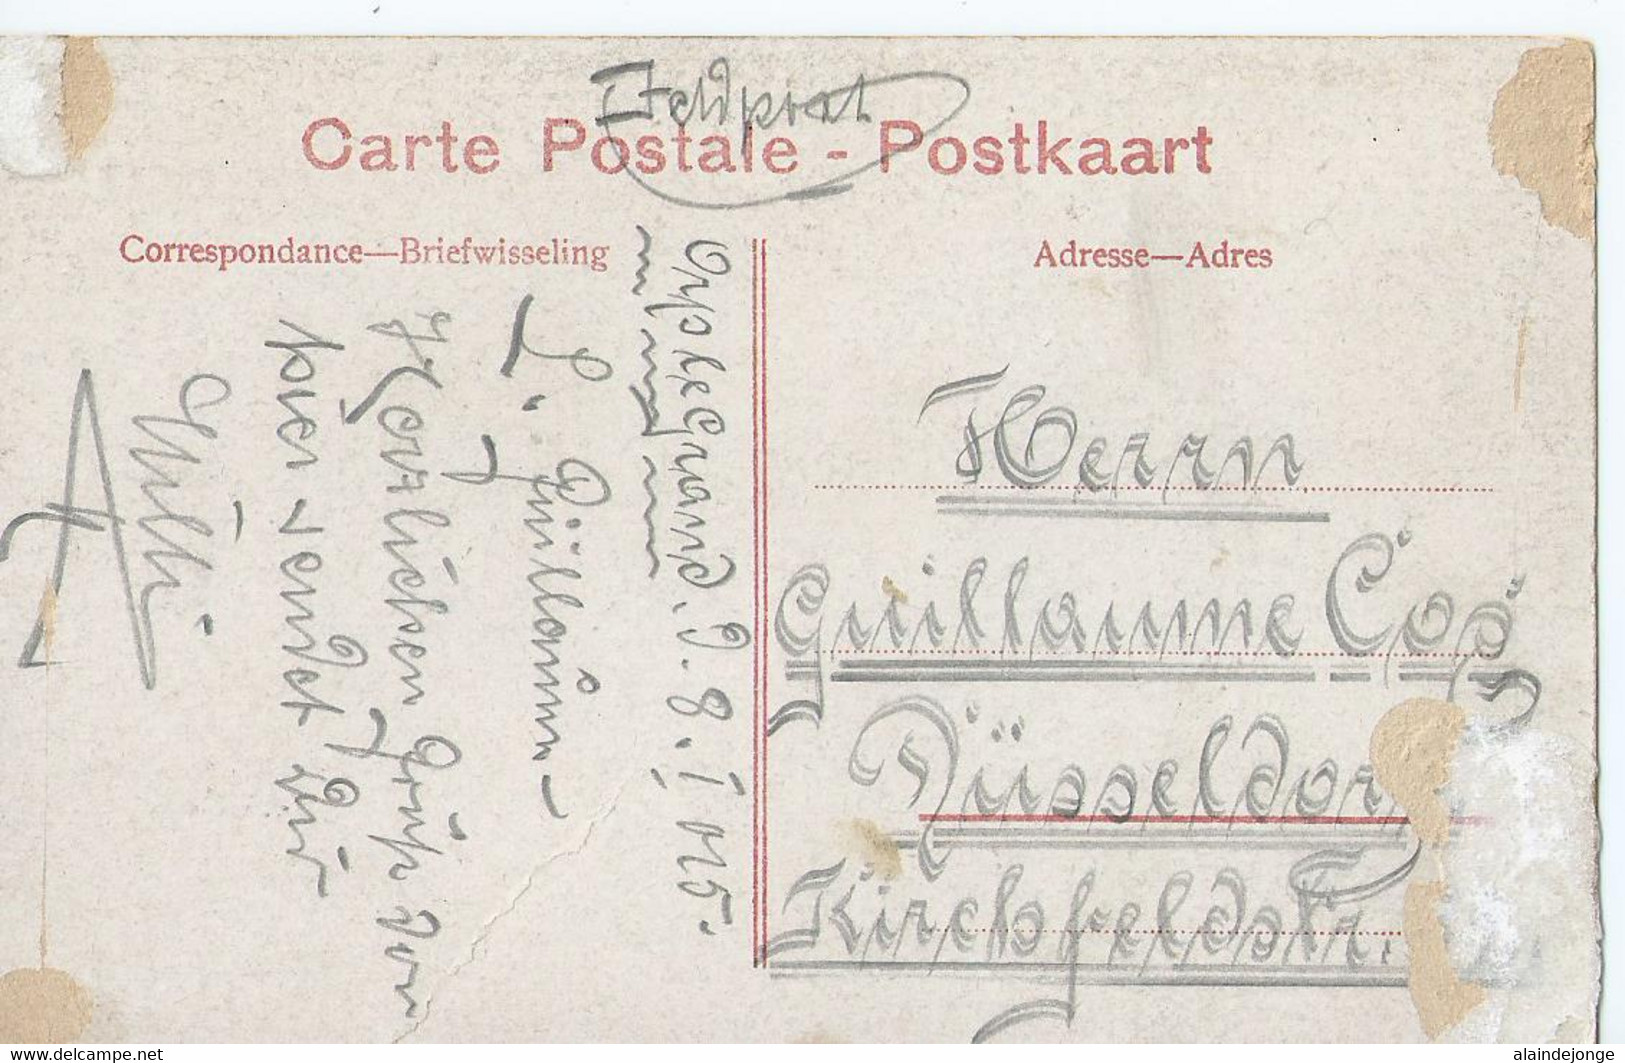 Feldpost
Carte Postale - Postkaart
Correspondance—Briefwisseling
Adresse—Adres
Orp le Grand. d. 8. I 015.
L. Guillaum-
Herzlichen Gruß von
hier sendet Dir
Willi
Herrn
Guillaume Cös
Düsseldorf
Kirchfeldstr.
www.delcampe.net
alaindejonge